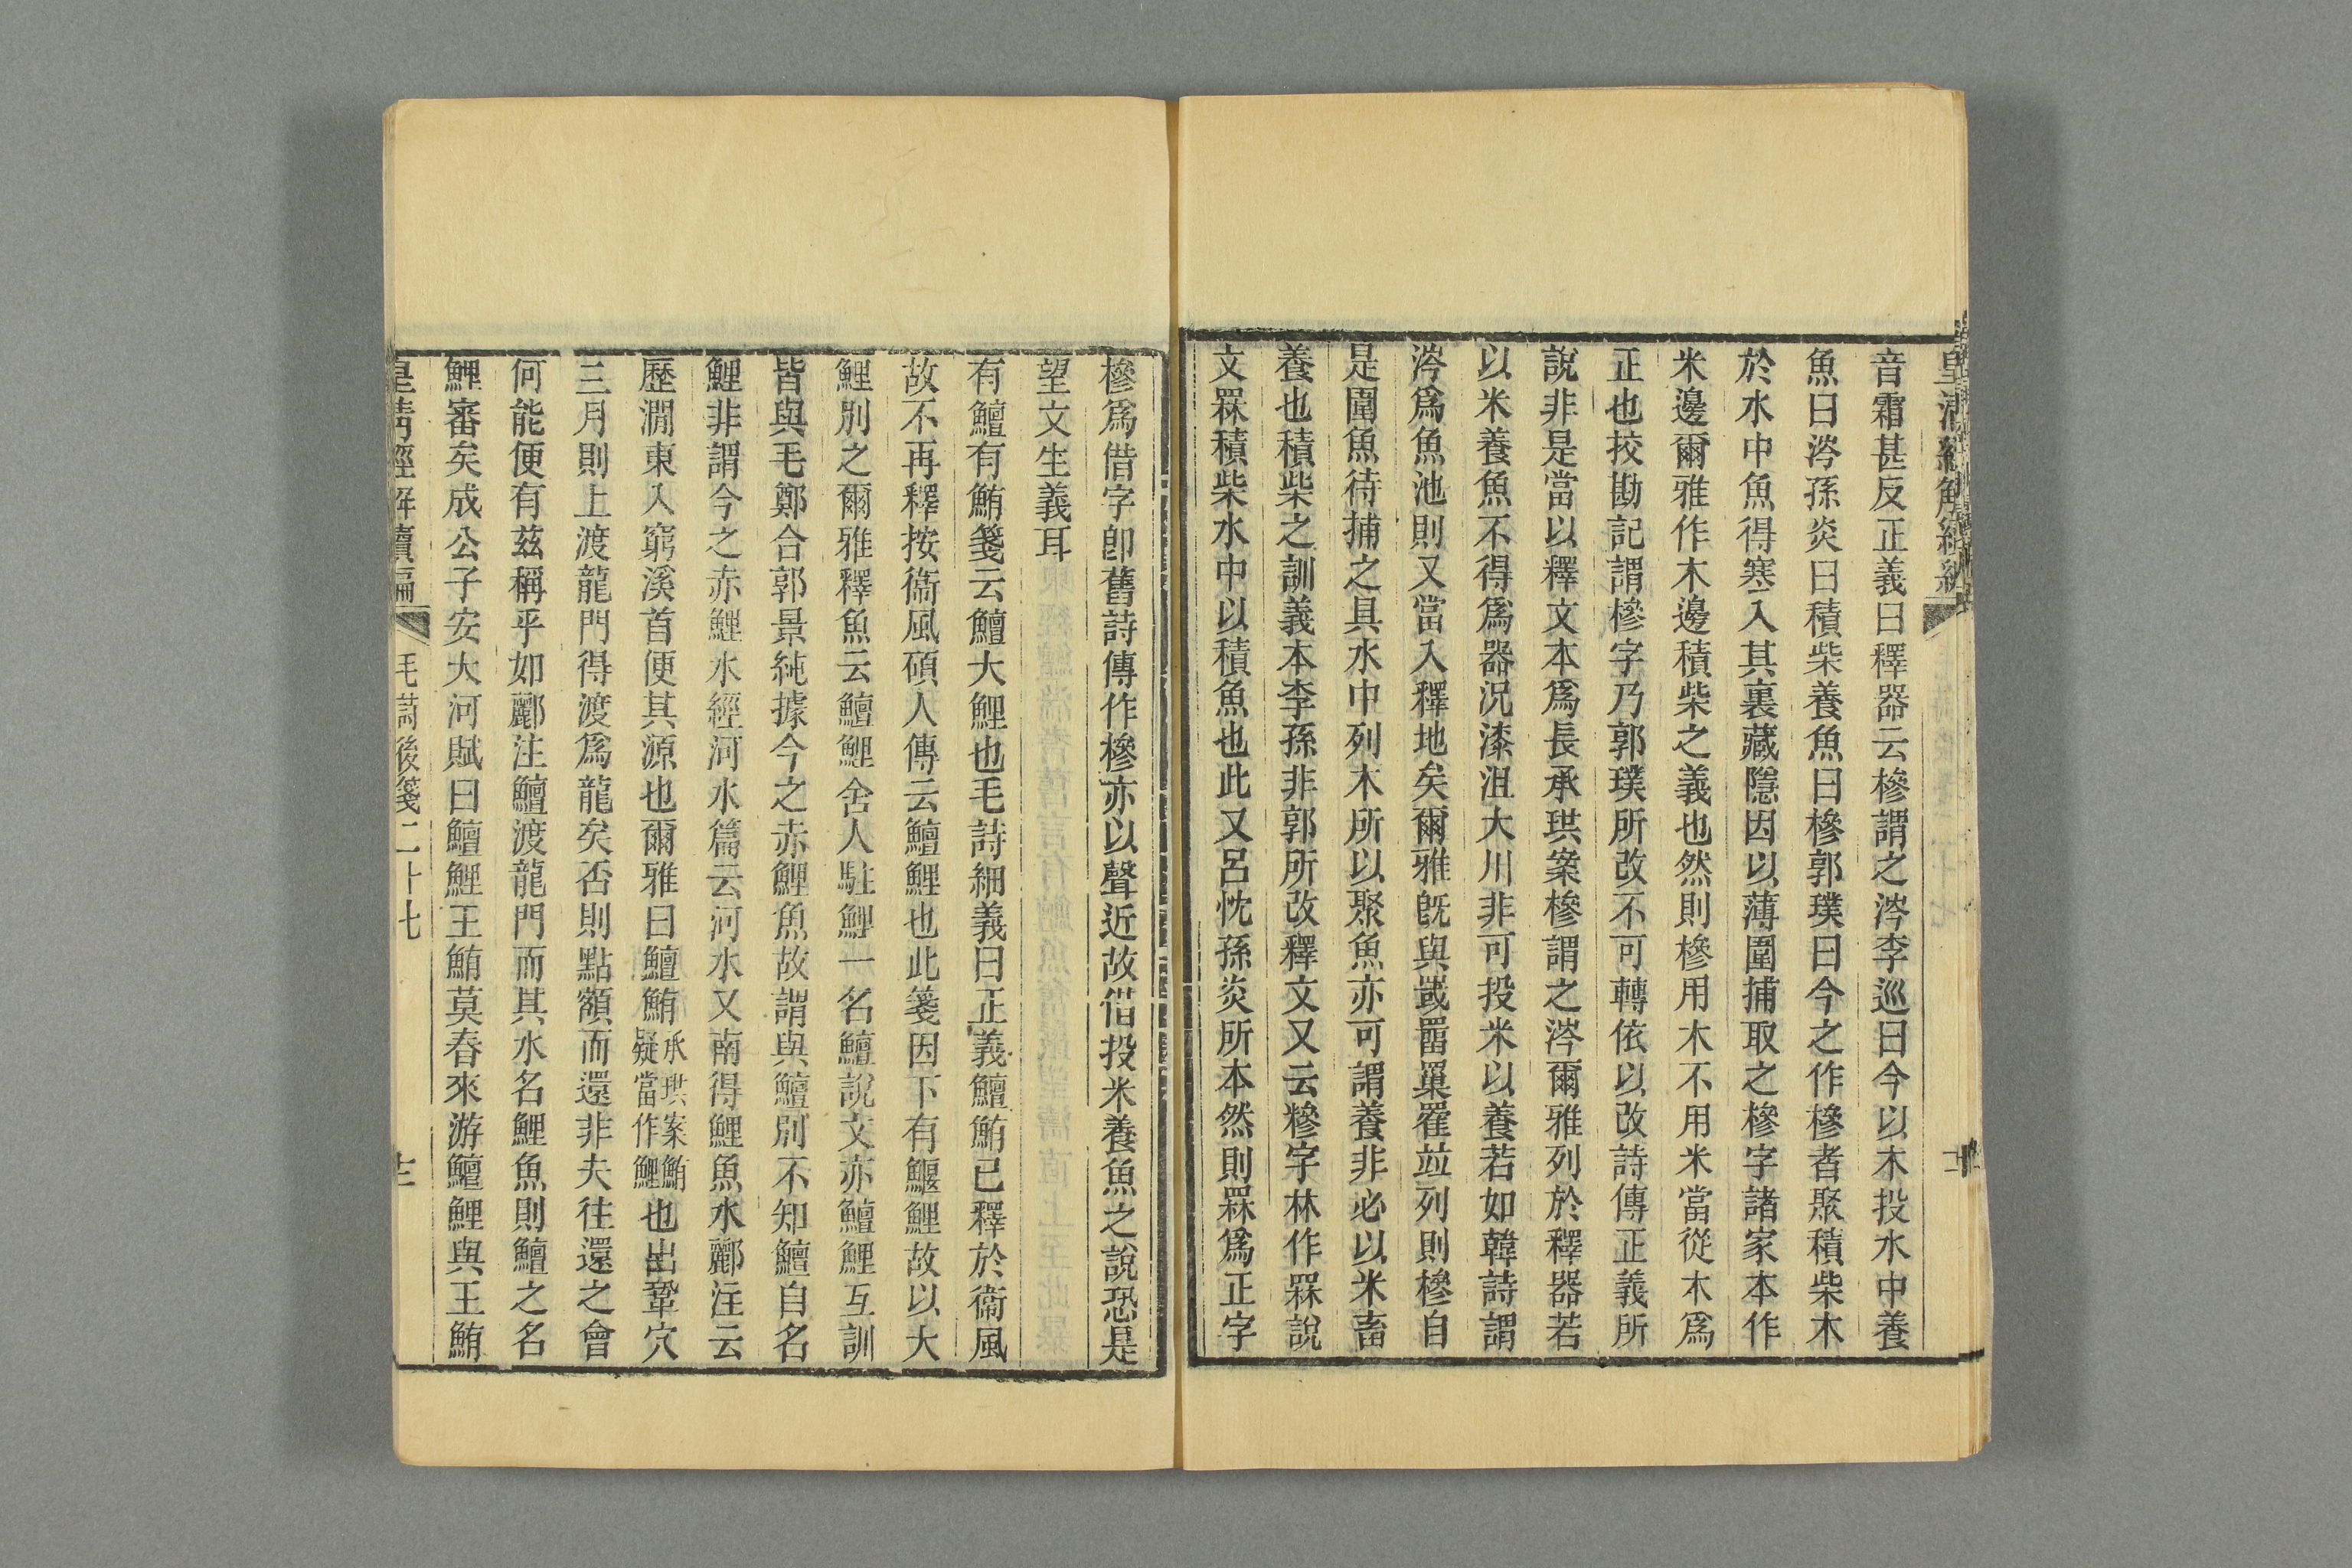 皇清經解續編
音霜甚反正義曰釋器云槮謂之涔李巡曰今以木投水中養
魚曰涔孫炎曰積柴養魚曰槮郭璞曰今之作槮者聚積柴木
於水中魚得寒入其裏藏隱因以薄圍捕取之槮字諸家本作
米邊爾雅作木邊積柴之義也然則槮用木不用米當從木爲
正也挍勘記謂槮字乃郭璞所改不可轉依以改詩傳正義所
說非是當以釋文本爲長承珙案槮謂之涔爾雅列於釋器若
以米養魚不得爲器況漆沮大川非可投米以養若如韓詩謂
涔爲魚池則又當入釋地矣爾雅旣與罭罶罺罹竝列則槮自
是圍魚待捕之具水中列木所以聚魚亦可謂養非必以米畜
養也積柴之訓義本李孫非郭所改釋文又云糝字林作罧說
文罧積柴水中以積魚也此又呂忱孫炎所本然則罧爲正字
槮爲借字卽舊詩傳作槮亦以聲近故借投米養魚之說恐是
望文生義耳
有鱣有鮪箋云鱣大鯉也毛詩細義曰正義鱣鮪已釋於衞風
故不再釋按衞風碩人傳云鱣鯉也此箋因下有鰋鯉故以大
鯉別之爾雅釋魚云鱣鯉舍人駐鯉一名鱣說文亦鱣鯉互訓
皆與毛鄭合郭景純據今之赤鯉魚故謂與鱣別不知鱣自名
鯉非謂今之赤鯉水經河水篇云河水又南得鯉魚水酈注云
歷澗東入窮溪首便其源也爾雅曰鱣鮪承珙案鮪疑當作鯉也出鞏穴
三月則上渡龍門得渡爲龍矣否則點額而還非夫往還之會
何能便有茲稱乎如酈注鱣渡龍門而其水名鯉魚則鱣之名
鯉審矣成公子安大河賦曰鱣鯉王鮪莫春來游鱣鯉與王鮪
皇清經解續編 毛詩後箋二十七